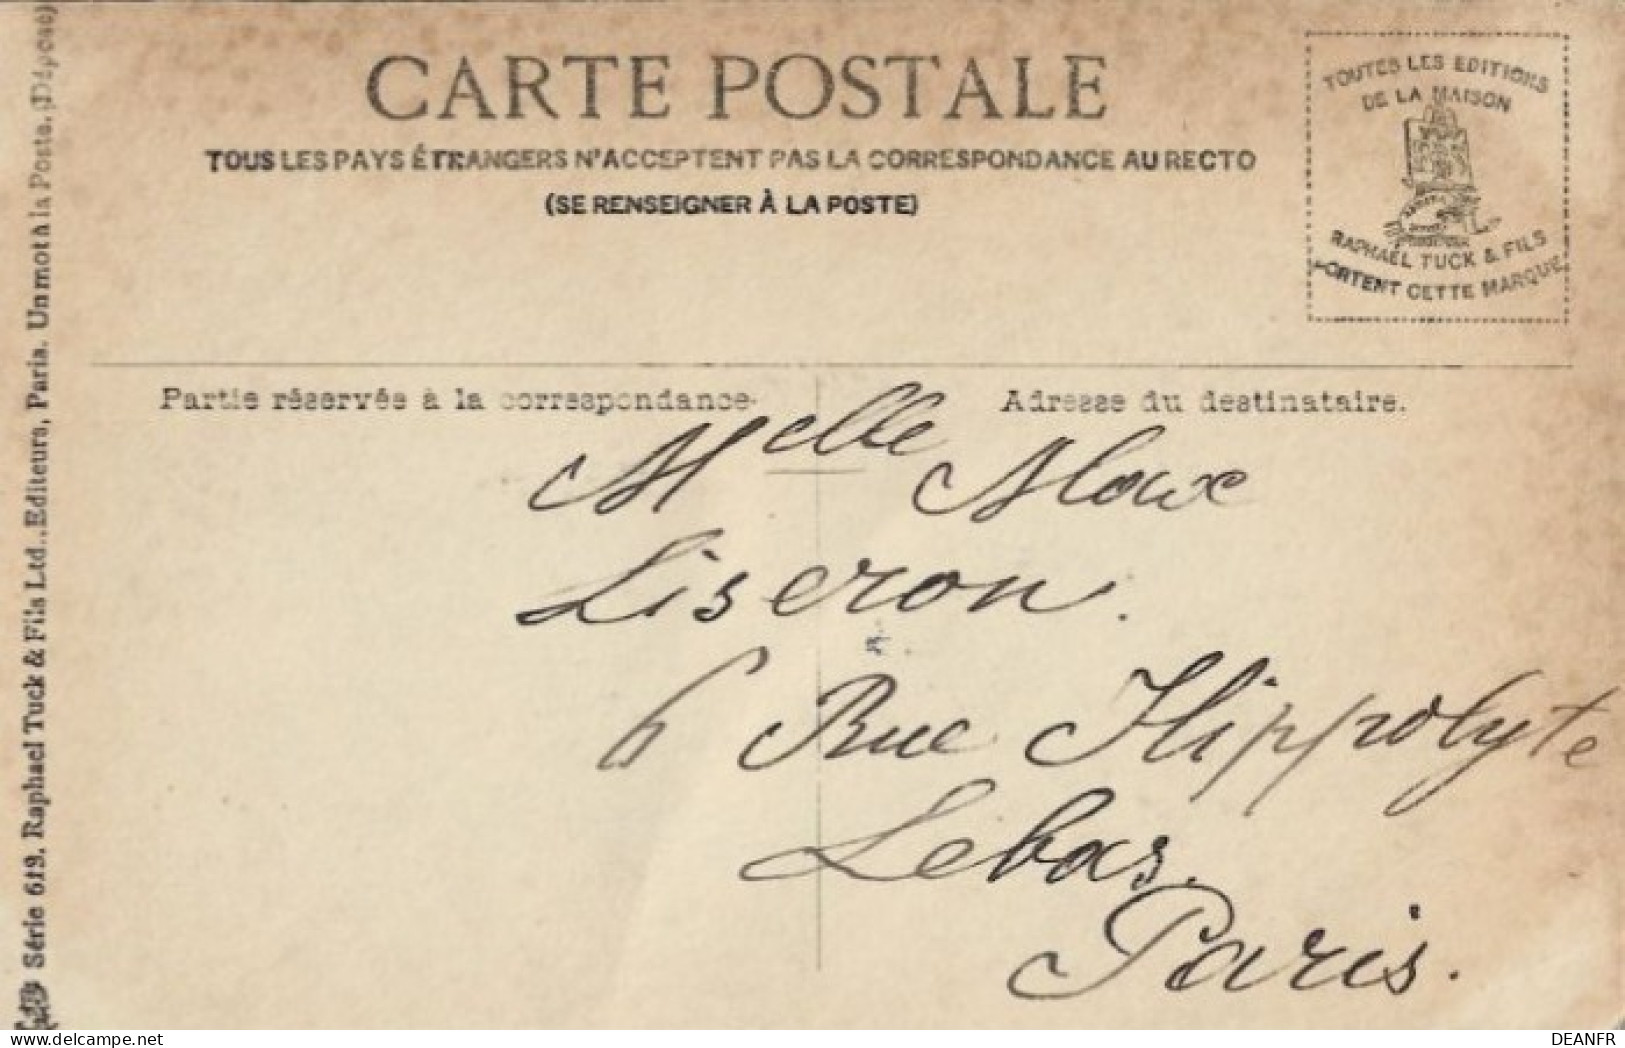 CARTE POSTALE
TOUS LES PAYS ÉTRANGERS N'ACCEPTENT PAS LA CORRESPONDANCE AU RECTO
(SE RENSEIGNER À LA POSTE)
TOUTES LES EDITIONS
DE LA MAISON
RAPHAËL TUCK & FILS
PORTENT CETTE MARQUE
Partie réservée à la correspondance.
Adresse du destinataire.
Melle
Liseron.
6 Rue Hippolyte
Lebas.
Paris.
Série 619. Raphael Tuck & Fils Ltd., Editeurs, Paris. Un mot à la Poste. (Déposé)
DEANFR